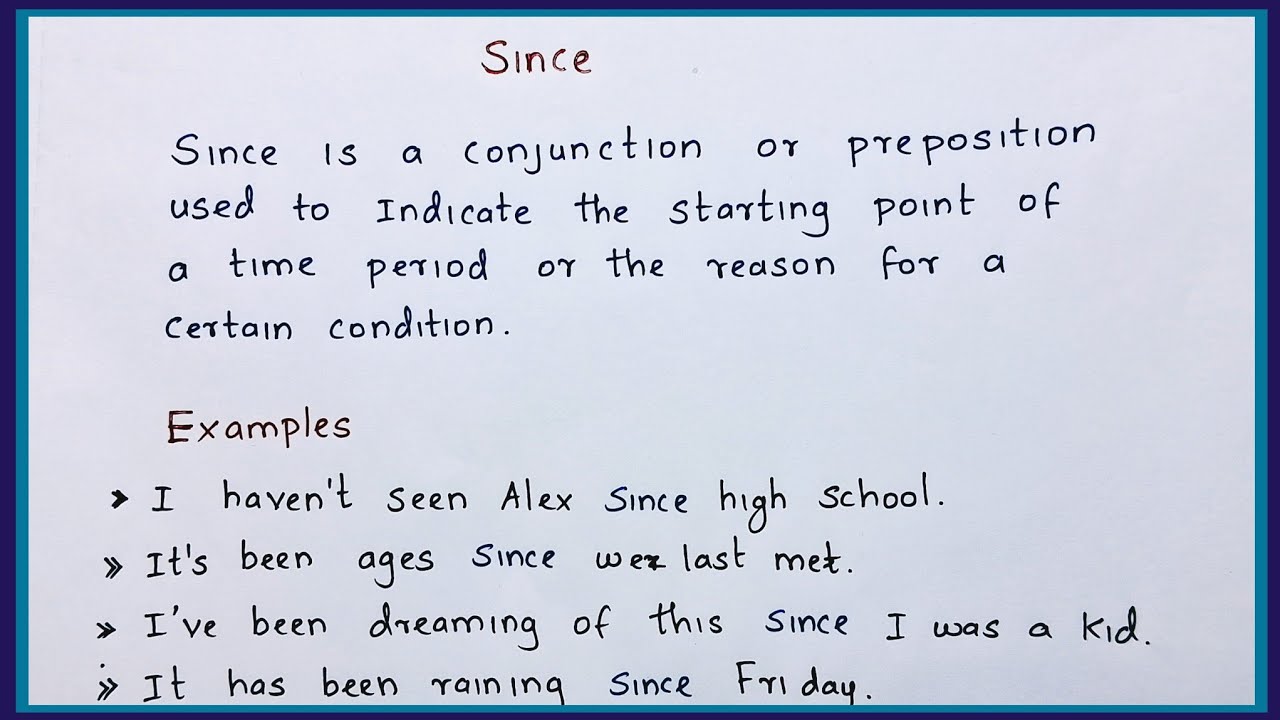 Since
Since is a conjunction or preposition
used to indicate the starting point of
a time period or the reason for a
certain condition.
Examples
» I haven't seen Alex since high school.
» It's been ages since we last met.
» I've been dreaming of this since I was a kid.
» It has been raining since Friday.